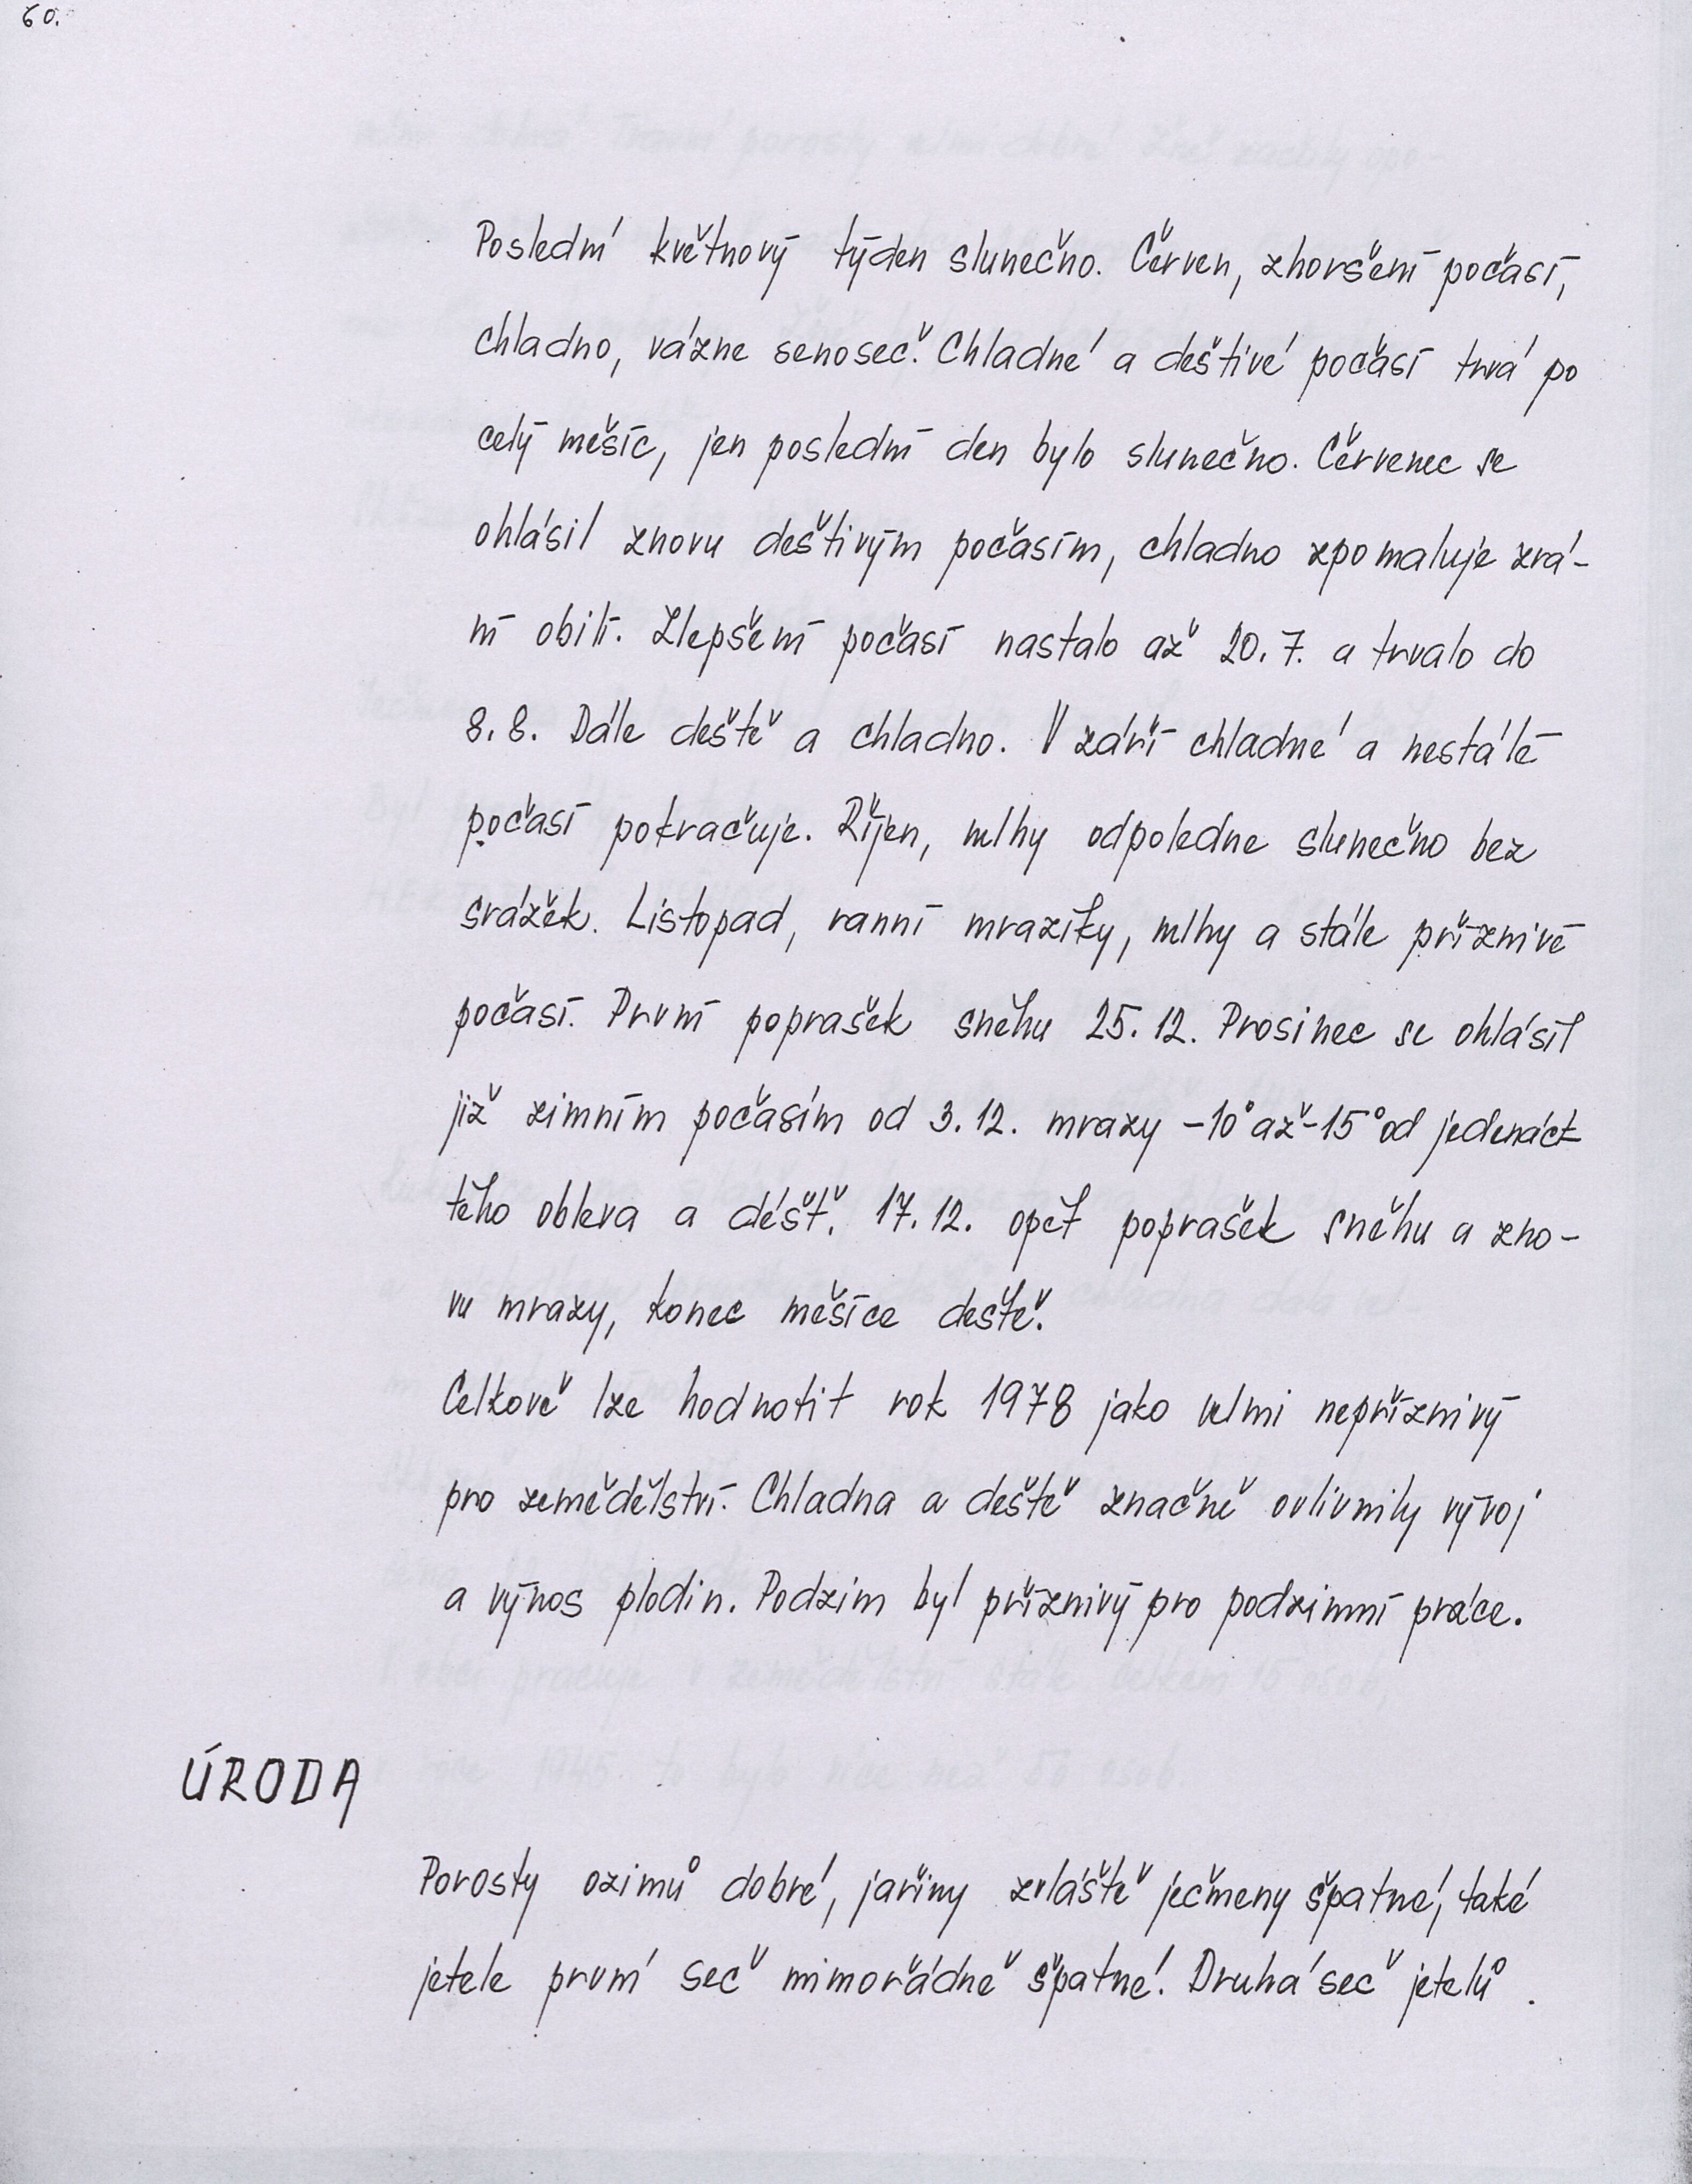 60.
Poslední květnový týden slunečno. Červen, zhoršení počasí,
chladno, vázne senoseč. Chladné a deštivé počasí trvá po
celý měsíc, jen poslední den bylo slunečno. Červenec se
ohlásil znovu deštivým počasím, chladno zpomaluje zrá-
ní obilí. Zlepšení počasí nastalo až 20. 7. a trvalo do
8. 8. Dále deště a chladno. V září chladné a nestálé
počasí pokračuje. Říjen, mlhy odpoledne slunečno bez
srážek. Listopad, ranní mrazíky, mlhy a stále příznivé
počasí. První poprašek sněhu 25. 12. Prosinec se ohlásil
již zimním počasím od 3. 12. mrazy -10° až -15° od jedenáct
tého obleva a déšť. 17. 12. opět poprašek sněhu a zno-
vu mrazy, konec měsíce deště.
Celkově lze hodnotit rok 1978 jako velmi nepříznivý
pro zemědělství. Chladna a deště značně ovlivnily vývoj
a výnos plodin. Podzim byl příznivý pro podzimní práce.
ÚRODA
Porosty ozimů dobré, jařiny zvláště ječmeny špatné, také
jetele první seč mimořádně špatné. Druhá seč jetelů